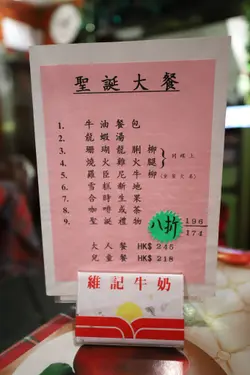 聖誕大餐
1. 牛油餐包
2. 龍蝦湯
3. 珊瑚龍脷柳
4. 燒火雞火腿 同碟上
5. 羅臣尼牛柳
6. 雪糕新地
7. 合時生果
8. 咖啡或茶
9. 聖誕禮物
八折 196
174
大人餐 HK$ 245
兒童餐 HK$ 218
維記牛奶